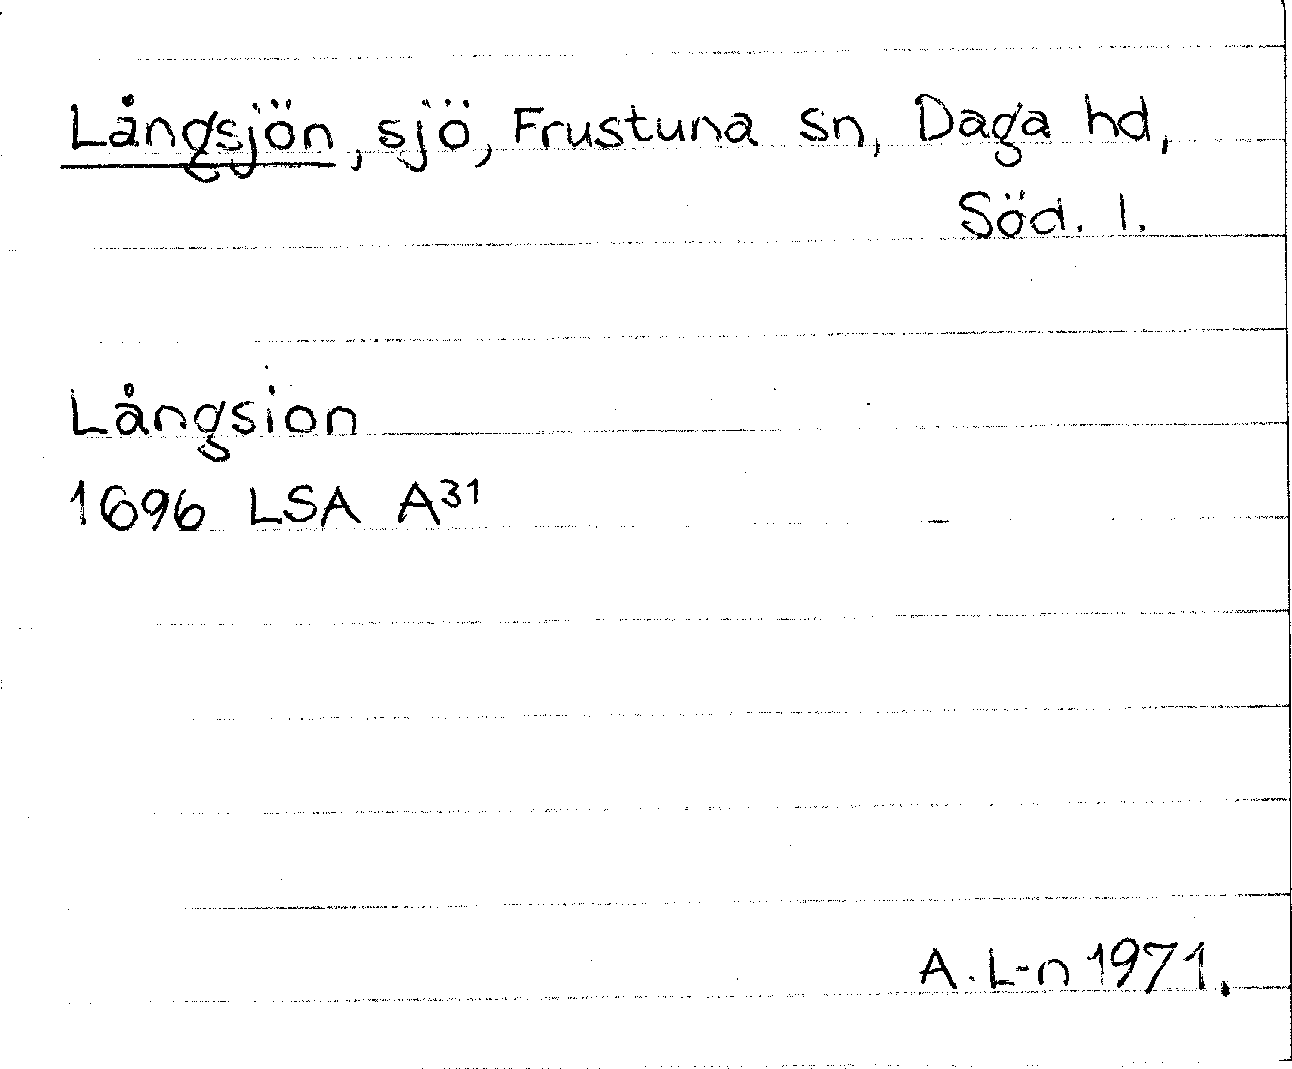 Långsjön, sjö, Frustuna sn, Daga hd,
Söd. l.
Långsion
1696 LSA A³¹
A. L-n 1971.